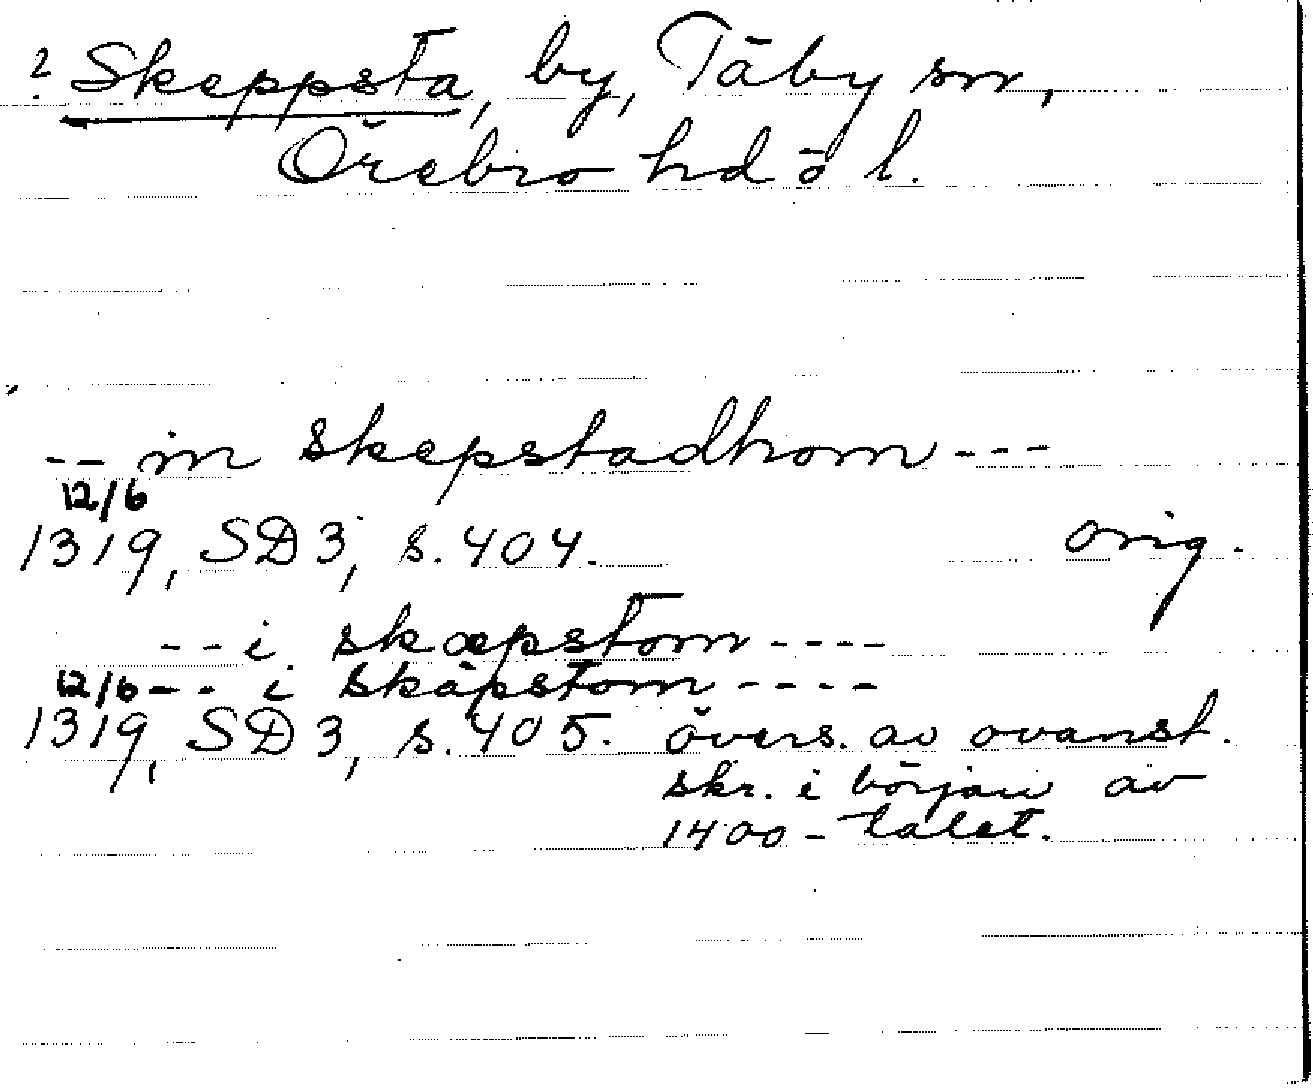 ? Skeppsta, by, Täby sn,
Örebro hd o l.
-- in skepstadhom ---
12/6
1319, SD 3, s. 404. orig.
-- i skæpstom ----
12/6 -- i skäpstom ----
1319, SD 3, s. 405. övers. av ovanst.
skr. i början av
1400-talet.